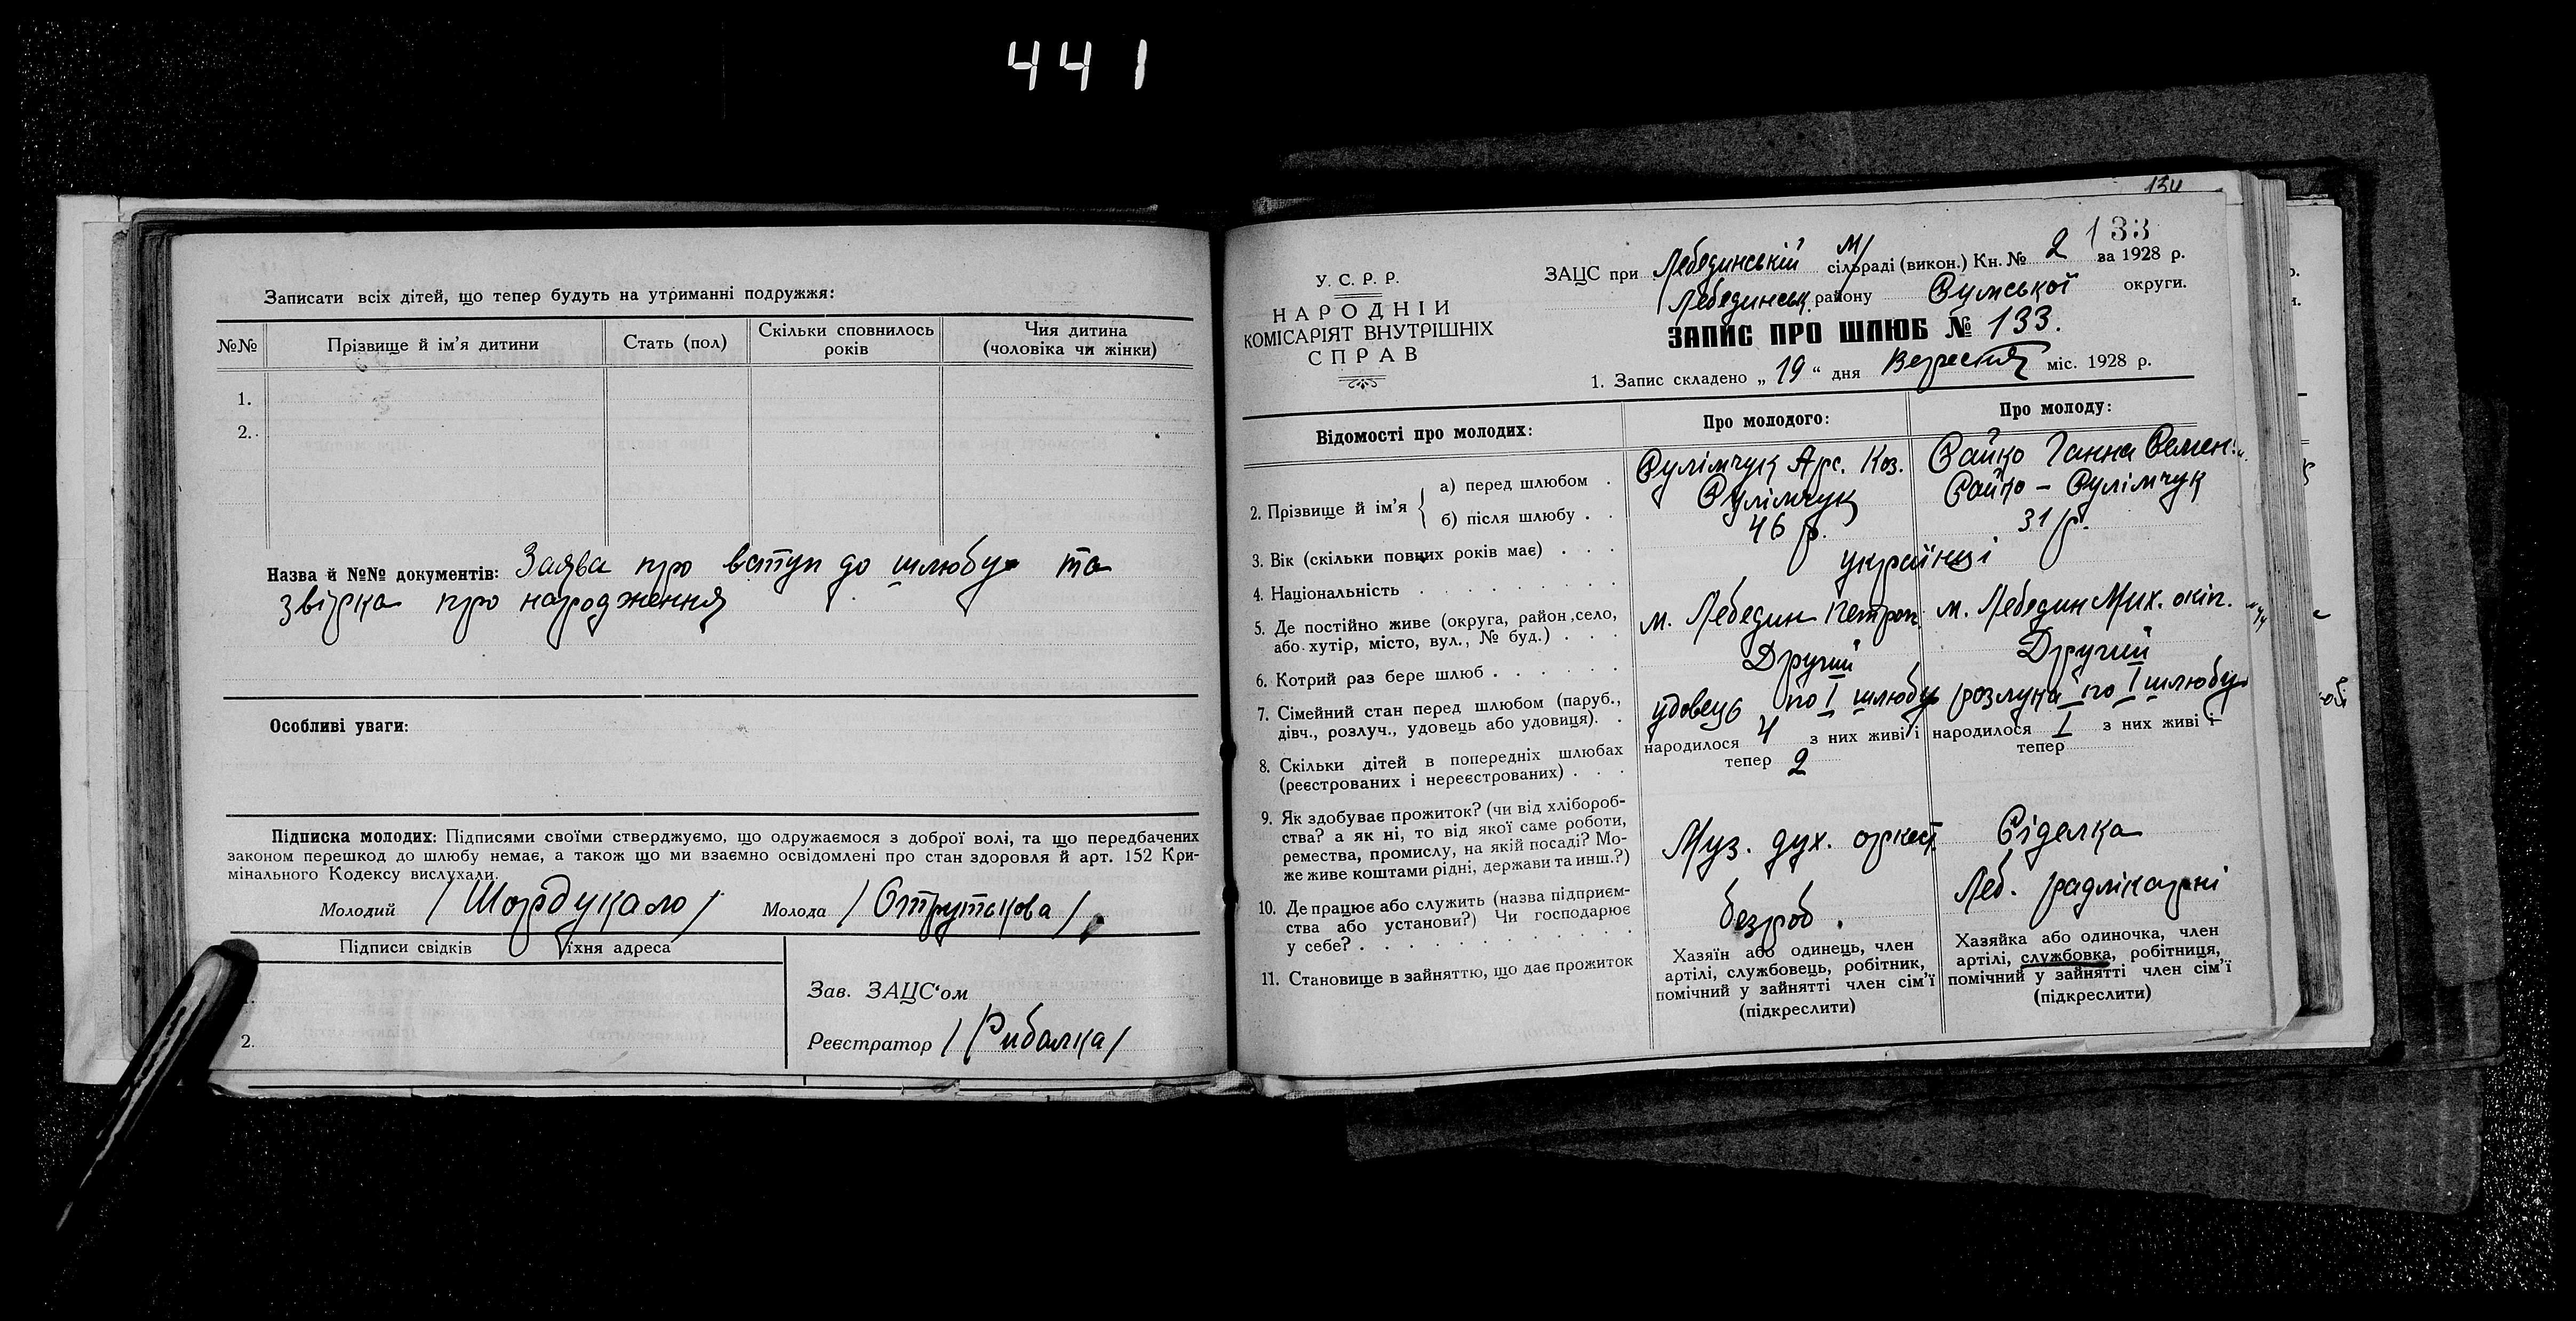 441
Записати всіх дітей, що тепер будуть на утриманні подружжя:
№№ Прізвище й ім'я дитини Стать (пол) Скільки сповнилось років Чия дитина (чоловіка чи жінки)
1.
2.
Назва й №№ документів: Заява про вступ до шлюбу та
звірка про народження
Особливі уваги:
Підписка молодих: Підписями своїми стверджуємо, що одружаємося з доброї волі, та що передбачених
законом перешкод до шлюбу немає, а також що ми взаємно освідомлені про стан здоровля й арт. 152 Кри-
мінального Кодексу вислухали.
Молодий /Шордукало/ Молода /Отрутькова/
Підписи свідків їхня адреса
Зав. ЗАЦС'ом
2.
Реєстратор /Рибалка/
134
133
У. С. Р. Р.
НАРОДНІЙ
КОМІСАРІЯТ ВНУТРІШНІХ
СПРАВ
ЗАЦС при Лебединській м/ сільраді (викон.) Кн. № 2 за 1928 р.
Лебединськ. району Сумської округи.
ЗАПИС ПРО ШЛЮБ № 133.
1. Запис складено „ 19 “ дня Вересня міс. 1928 р.
Відомості про молодих: Про молодого: Про молоду:
2. Прізвище й ім'я
а) перед шлюбом . Сулімчук Арс. Коз. Сайко Ганна Семен.
б) після шлюбу . . Сулімчук Сайко - Сулімчук
3. Вік (скільки повних років має) . . . 46 р. 31 р.
4. Національність . . . українці
5. Де постійно живе (округа, район, село,
або хутір, місто, вул., № буд.) . . . м. Лебедин Петроп. м. Лебедин Мих. окіп.
6. Котрий раз бере шлюб . . . Другий Другий
7. Сімейний стан перед шлюбом (паруб.,
дівч., розлуч., удовець або удовиця). . удовець по I шлюбу розлука по I шлюбу
8. Скільки дітей в попередніх шлюбах
(реєстрованих і нереєстрованих) . . .
народилося 4 з них живі і
тепер 2
народилося I з них живі і
тепер
9. Як здобуває прожиток? (чи від хлібороб-
ства? а як ні, то від якої саме роботи,
ремества, промислу, на якій посаді? Мо-
же живе коштами рідні, держави та инш.?)
Муз. дух. оркест. Сіделка
10. Де працює або служить (назва підприєм-
ства або установи?) Чи господарює
у себе? . . .
безроб. Леб. радлікарні
11. Становище в зайняттю, що дає прожиток
Хазяїн або одинець, член
артілі, службовець, робітник,
помічний у зайнятті член сім'ї
(підкреслити)
Хазяйка або одиночка, член
артілі, службовка, робітниця,
помічний у зайнятті член сім'ї
(підкреслити)